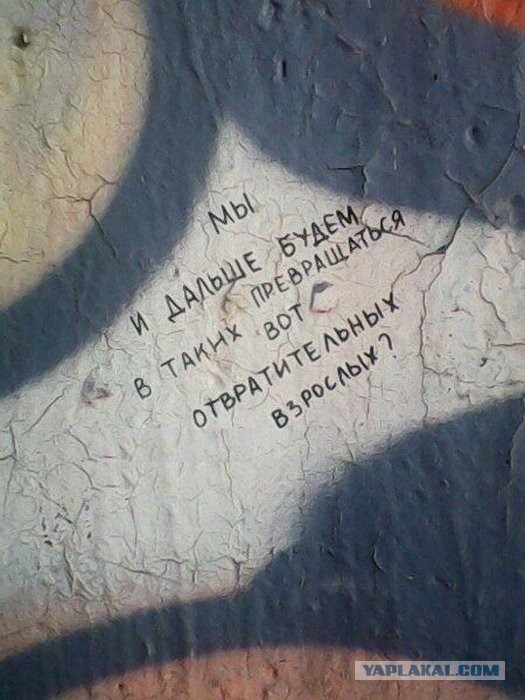 МЫ
И ДАЛЬШЕ БУДЕМ
ПРЕВРАЩАТЬСЯ
В ТАКИХ ВОТ
ОТВРАТИТЕЛЬНЫХ
ВЗРОСЛЫХ?
YAPLAKAL.COM